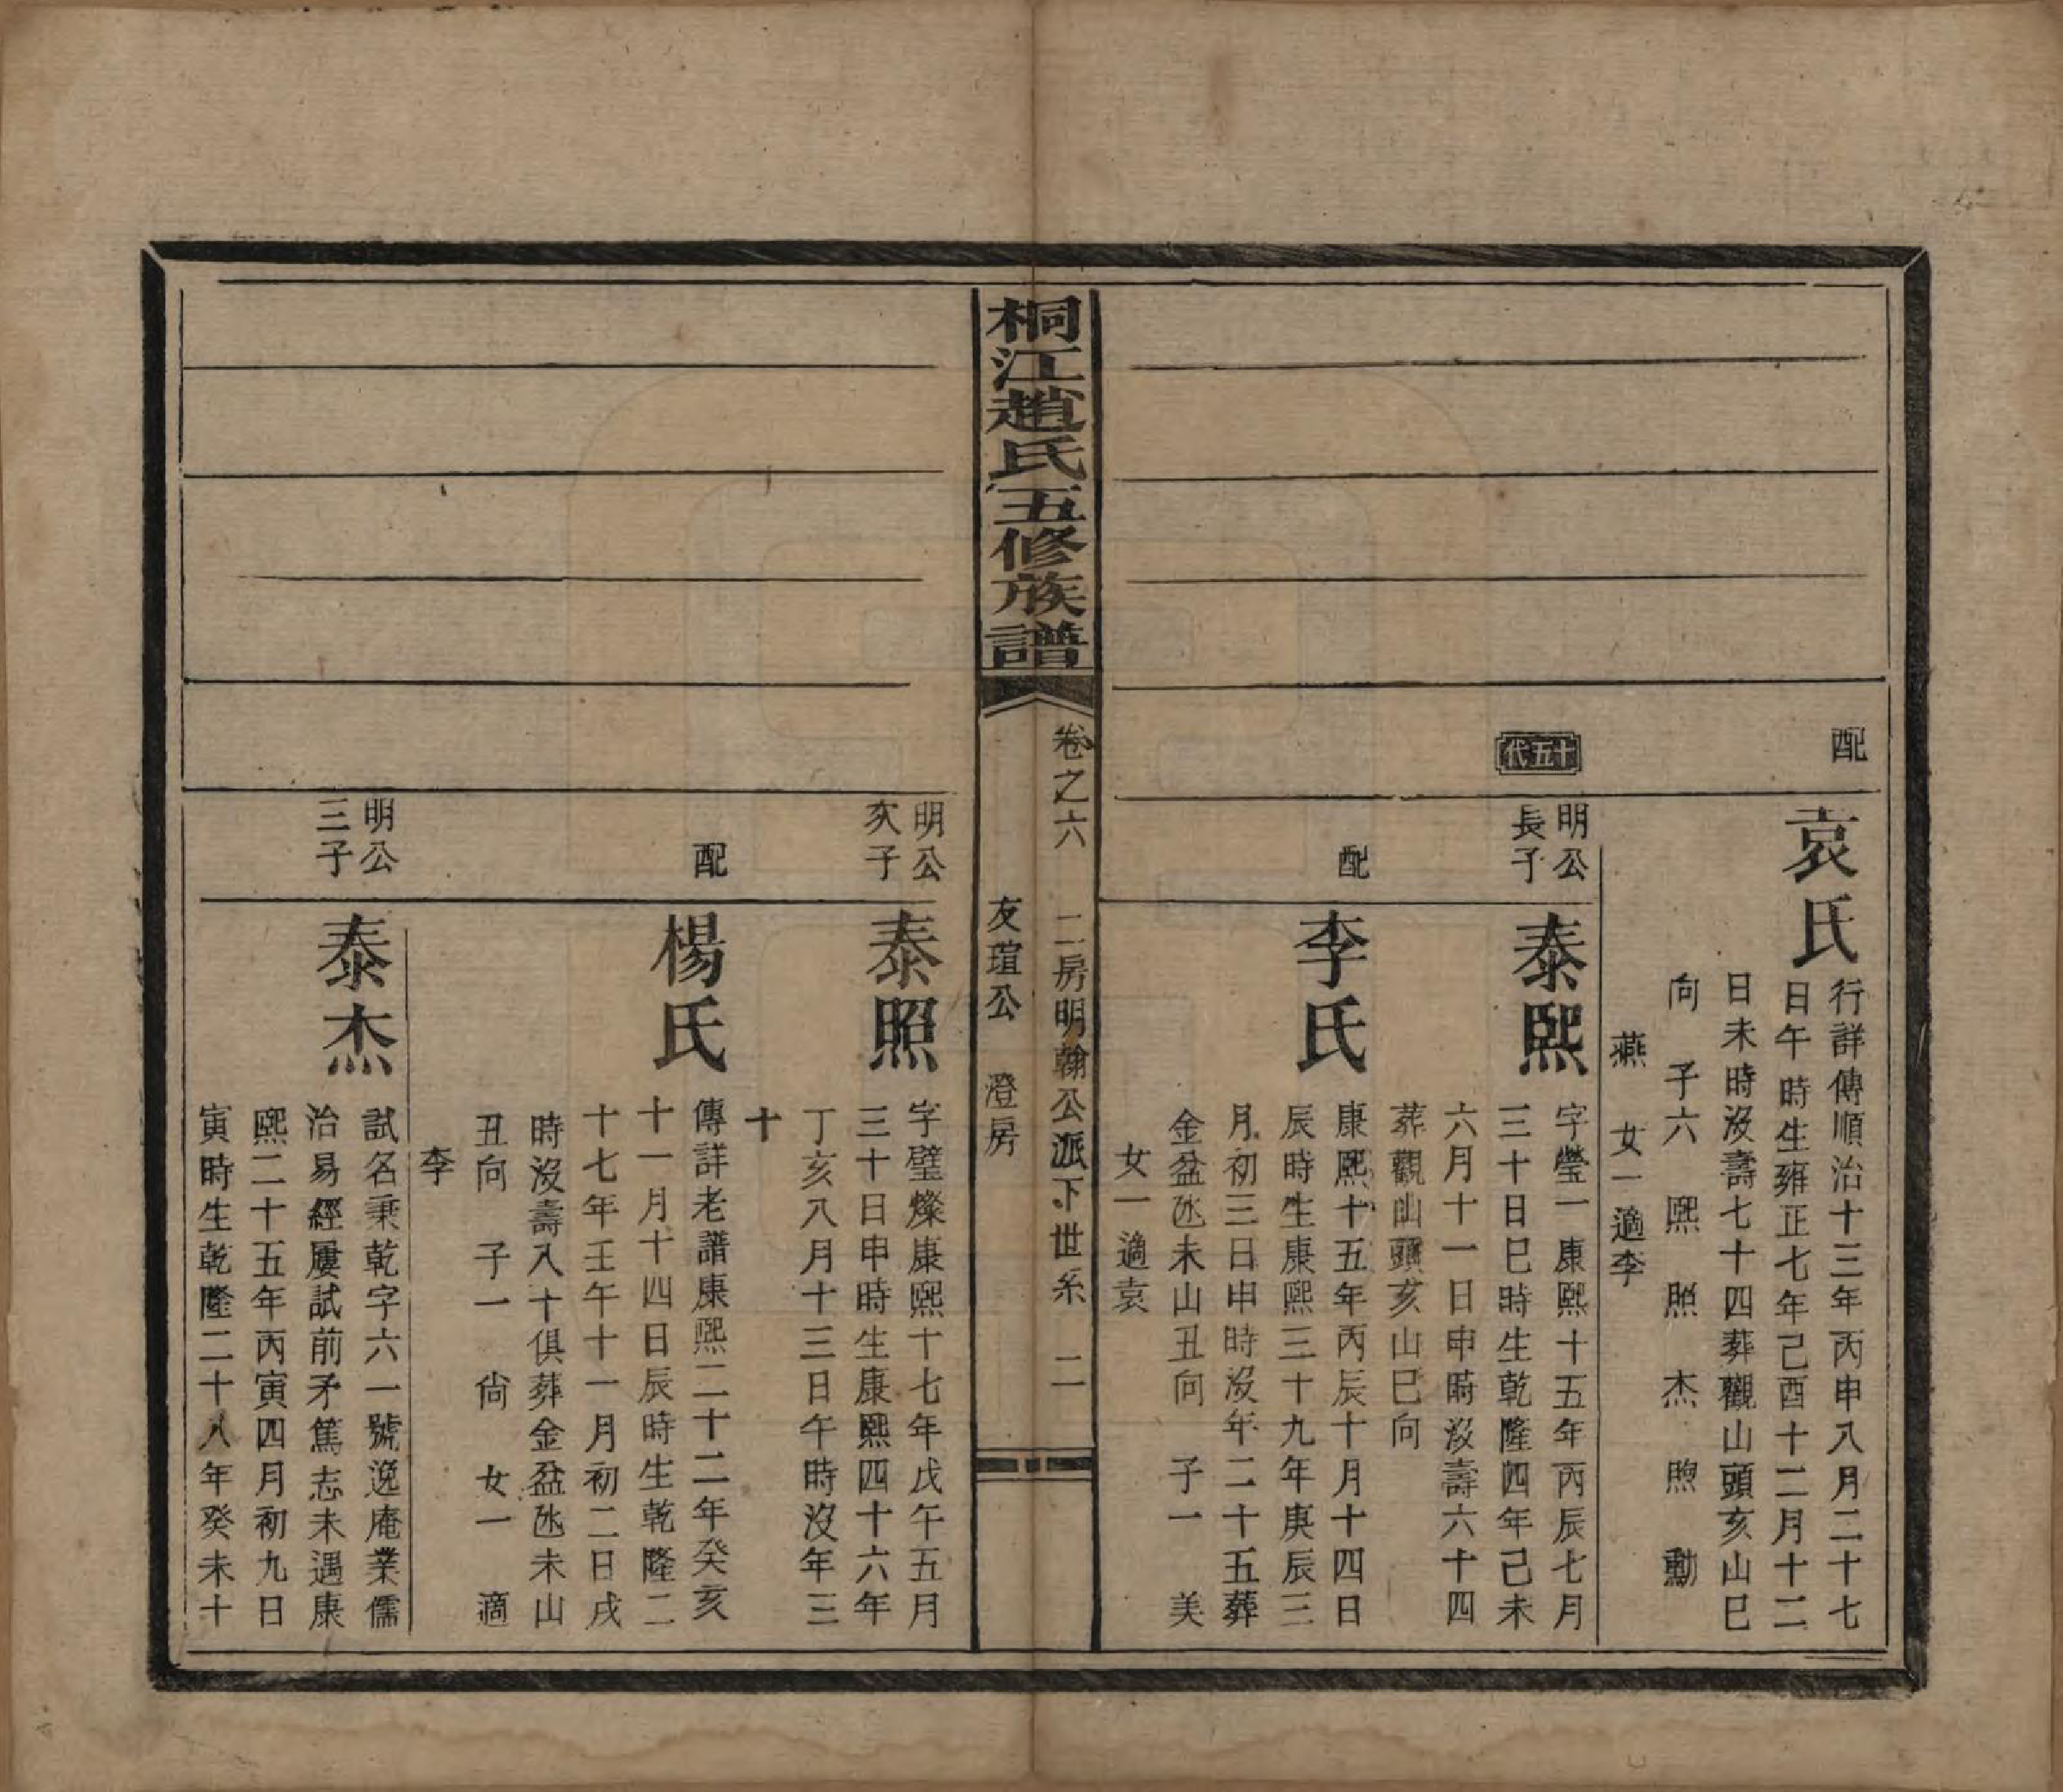 配
袁氏
行詳傳順治十三年丙申八月二十七
日午時生雍正七年己酉十二月十二
日未時沒壽七十四葬觀山頭亥山巳
向 子六 熙 照 杰 煦 勳
燕 女一適李
十五代
明公
長子
泰熙
字瑩一康熙十五年丙辰七月
三十日巳時生乾隆四年己未
六月十一日申時沒壽六十四
葬觀山頭亥山巳向
配
李氏
康熙十五年丙辰十月十四日
辰時生康熙三十九年庚辰三
月初三日申時沒年二十五葬
金盆氹未山丑向 子一 美
女一適袁
桐江趙氏五修族譜
卷之六 二房明翰公派下世系 二
友瑄公 澄房
明公
次子
泰照
字璧燦康熙十七年戊午五月
三十日申時生康熙四十六年
丁亥八月十三日午時沒年三
十
配
楊氏
傳詳老譜康熙二十二年癸亥
十一月十四日辰時生乾隆二
十七年壬午十一月初二日戌
時沒壽八十俱葬金盆氹未山
丑向 子一 尙 女一 適
李
明公
三子
泰杰
試名秉乾字六一號逸庵業儒
治易經屢試前矛篤志未遇康
熙二十五年丙寅四月初九日
寅時生乾隆二十八年癸未十